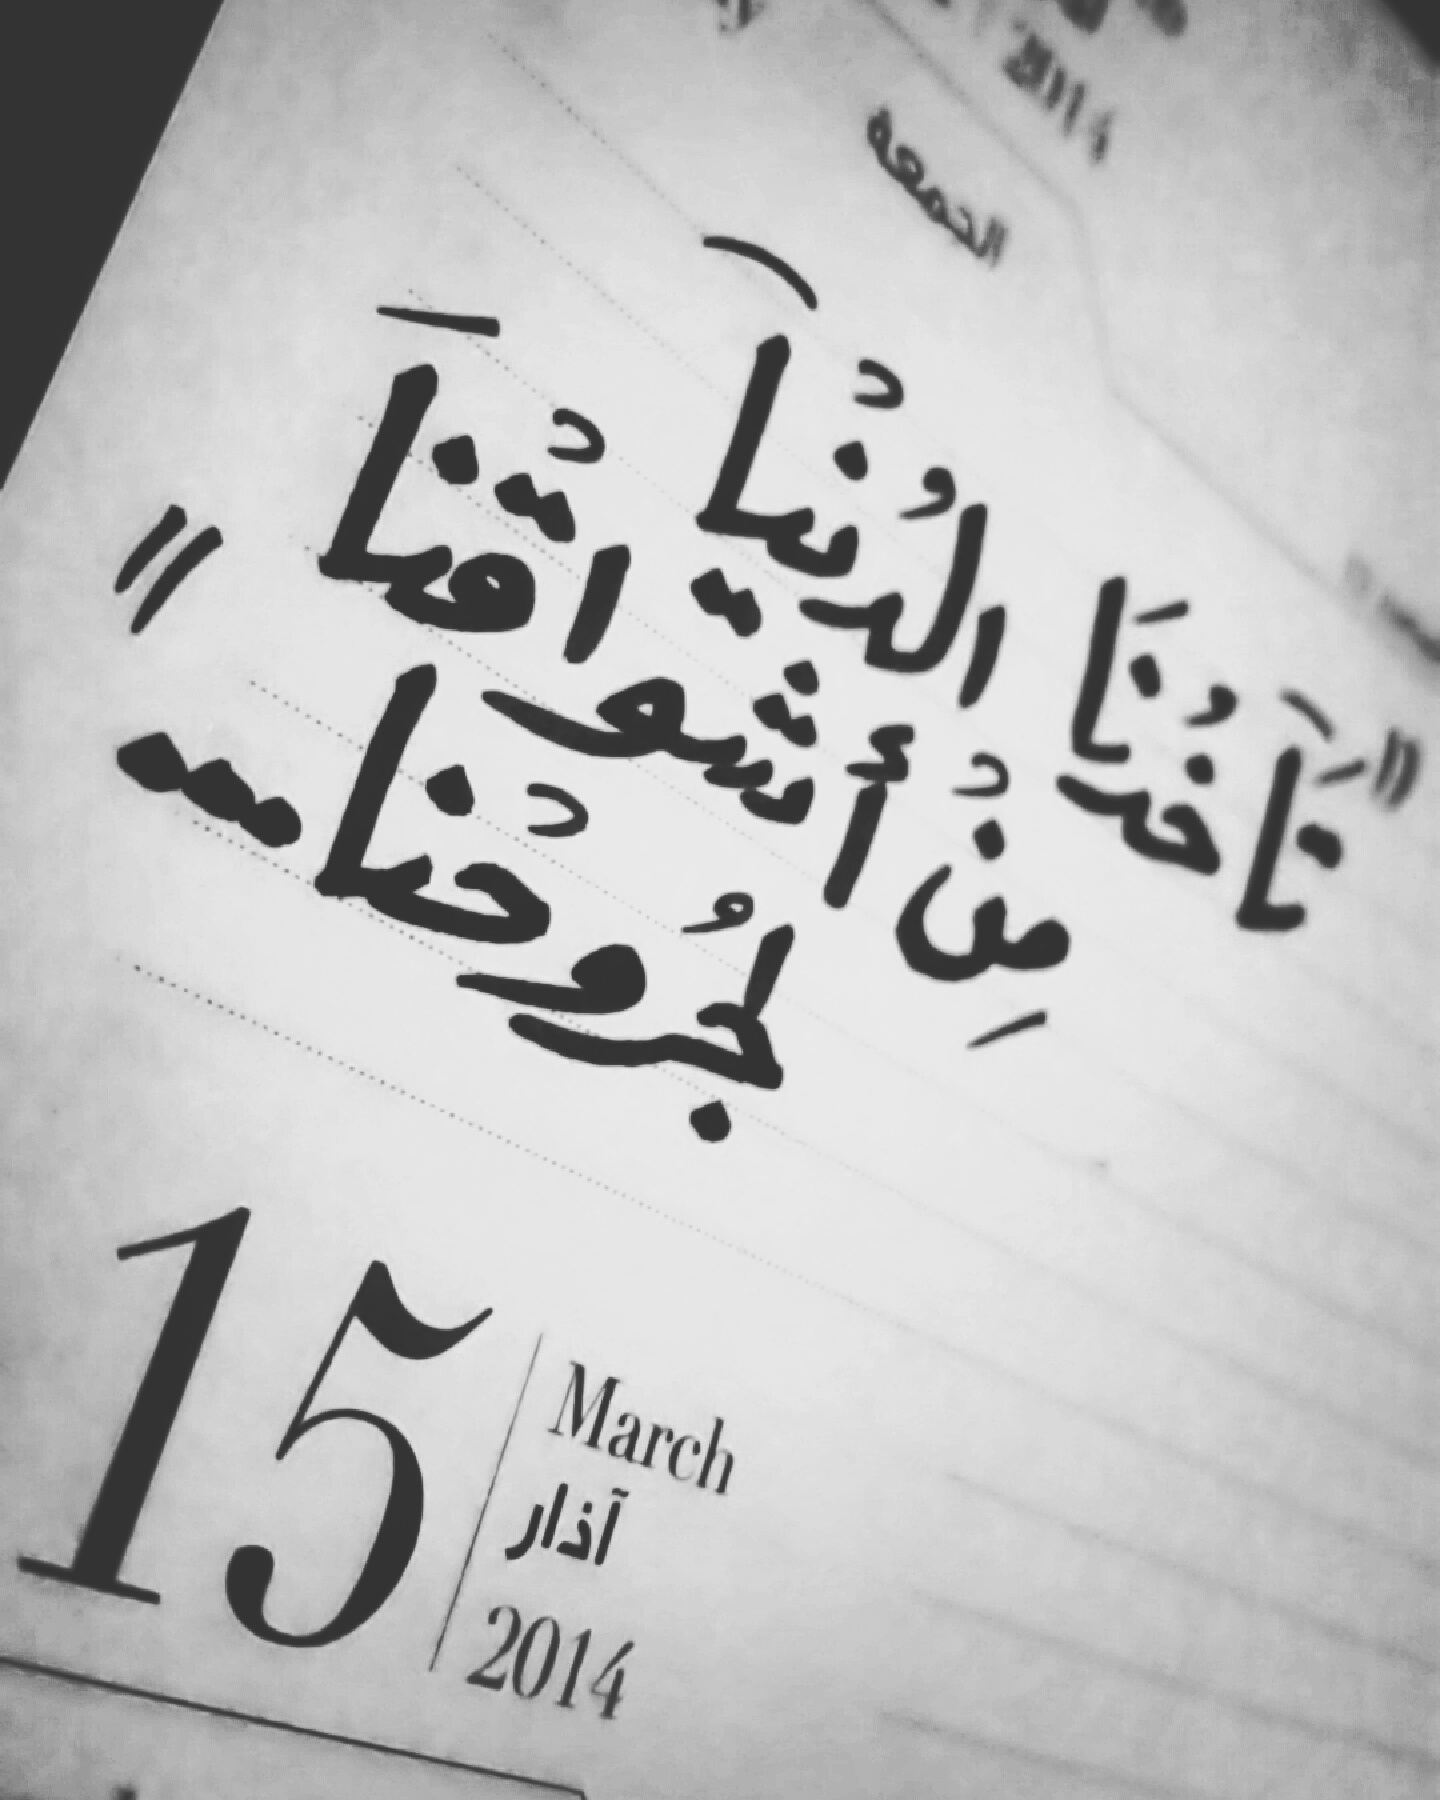 2014
الجمعة
"تَاخُدنَا الدُنْيَا
مِنْ أشْواقْنَا "
لجُروحْنا...
15
March
آذار
2014